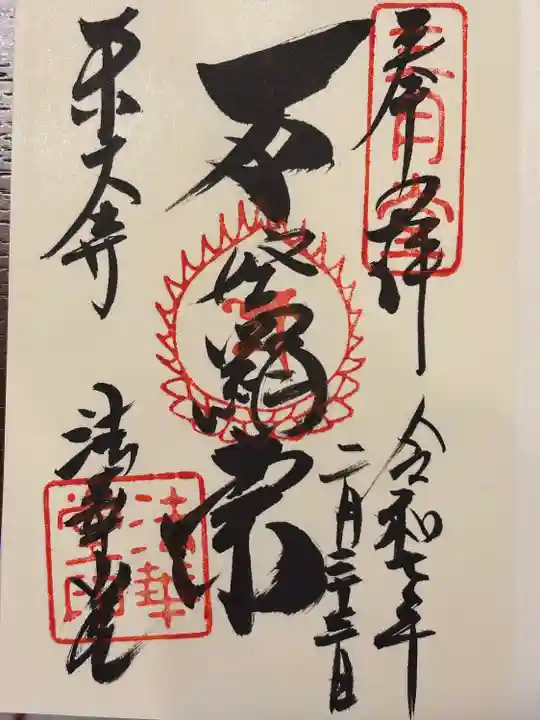 奉拝
三月堂
令和七年
二月二十三日
不空羂索
東大寺
法華堂
法華堂印